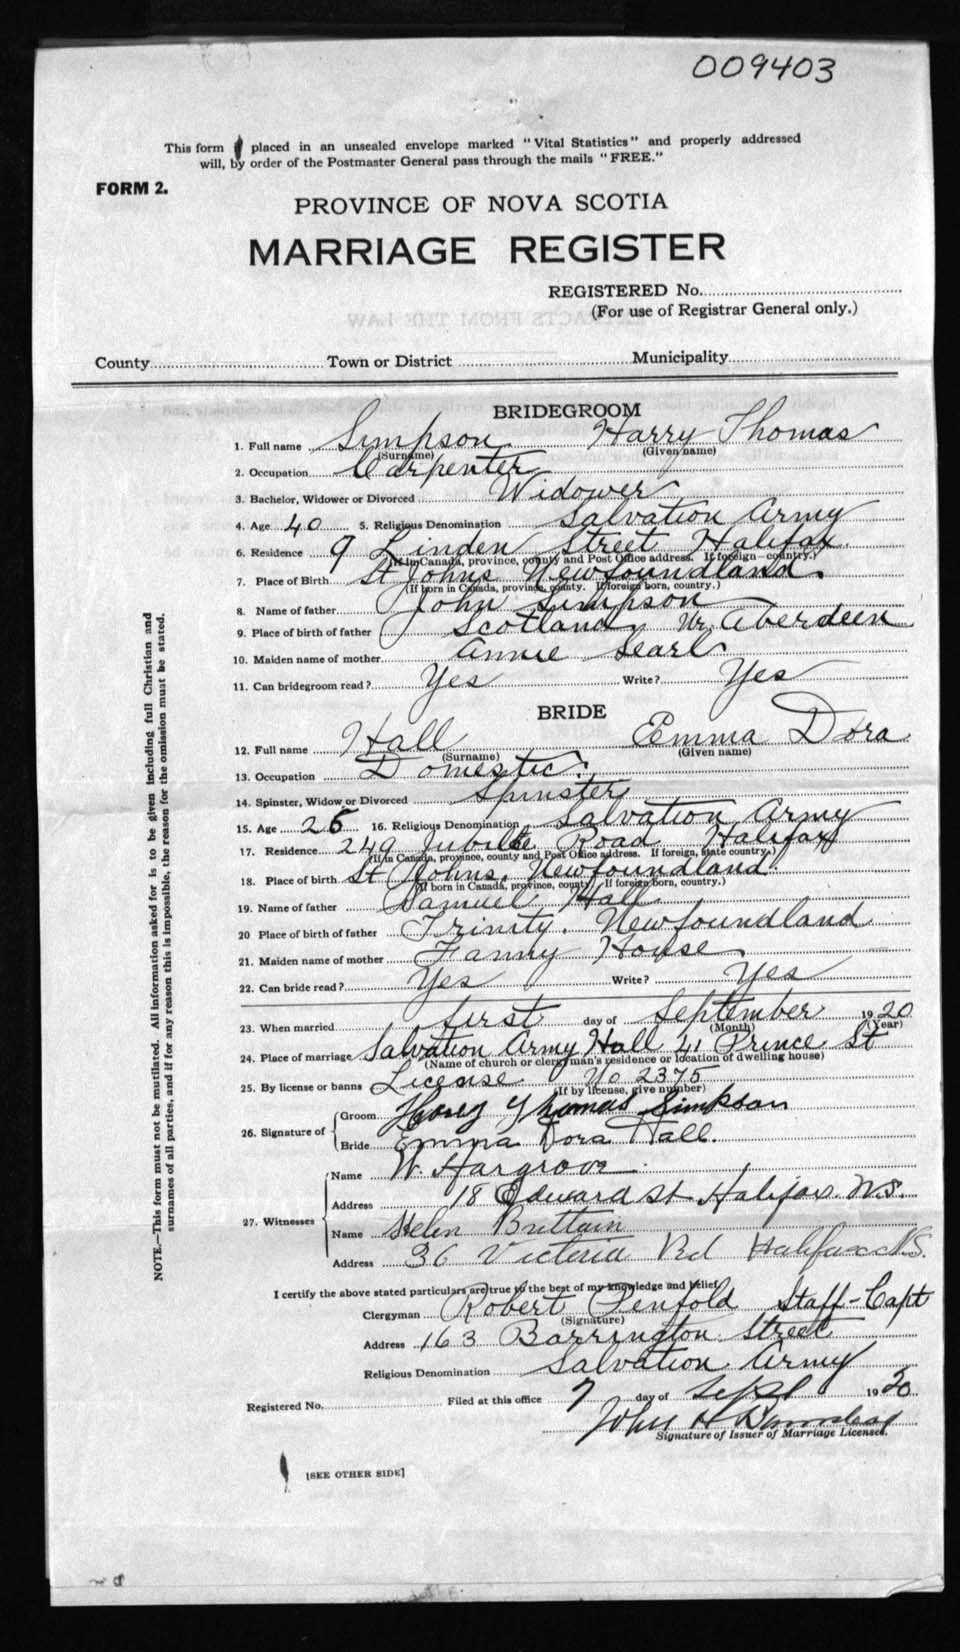 009403
This form placed in an unsealed envelope marked "Vital Statistics" and properly addressed
will, by order of the Postmaster General pass through the mails "FREE."
FORM 2.
PROVINCE OF NOVA SCOTIA
MARRIAGE REGISTER
REGISTERED No.
(For use of Registrar General only.)
County Town or District Municipality
BRIDEGROOM
1. Full name Simpson Harry Thomas
(Surname) (Given name)
2. Occupation Carpenter
3. Bachelor, Widower or Divorced Widower
4. Age 40 5. Religious Denomination Salvation Army
6. Residence 9 Linden Street Halifax
(If in Canada, province, county and Post Office address. If foreign—country.)
7. Place of Birth St Johns Newfoundland.
(If born in Canada, province, county. If foreign born, country.)
8. Name of father John Simpson
9. Place of birth of father Scotland Nr. Aberdeen
10. Maiden name of mother Annie Searl
11. Can bridegroom read? Yes Write? Yes
BRIDE
12. Full name Hall Emma Dora
(Surname) (Given name)
13. Occupation Domestic.
14. Spinster, Widow or Divorced Spinster
15. Age 26 16. Religious Denomination Salvation Army
17. Residence 249 Jubilee Road Halifax
(If in Canada, province, county and Post Office address. If foreign, state country.)
18. Place of birth St Johns, Newfoundland.
(If born in Canada, province, county. If foreign born, country.)
19. Name of father Samuel Hall
20 Place of birth of father Trinity. Newfoundland
21. Maiden name of mother Fanny House
22. Can bride read? Yes Write? Yes
23. When married first day of September 1920
(Month) (Year)
24. Place of marriage Salvation Army Hall 41 Prince St
(Name of church or clergyman's residence or location of dwelling house)
25. By license or banns License No 2375
(If by license, give number)
26. Signature of Groom Harry Thomas Simpson
Bride Emma Dora Hall.
27. Witnesses Name W. Hargrove
Address 18 Edward St Halifax. N.S.
Name Helen Brittain
Address 36 Victoria Rd Halifax N.S.
I certify the above stated particulars are true to the best of my knowledge and belief
Clergyman Robert Penfold Staff-Capt
(Signature)
Address 163 Barrington Street
Religious Denomination Salvation Army
Registered No. Filed at this office 7 day of Sept 1920
John H
Signature of Issuer of Marriage Licenses.
[SEE OTHER SIDE]
NOTE.—This form must not be mutilated. All information asked for is to be given including full Christian and
surnames of all parties, and if for any reason this is impossible, the reason for the omission must be stated.